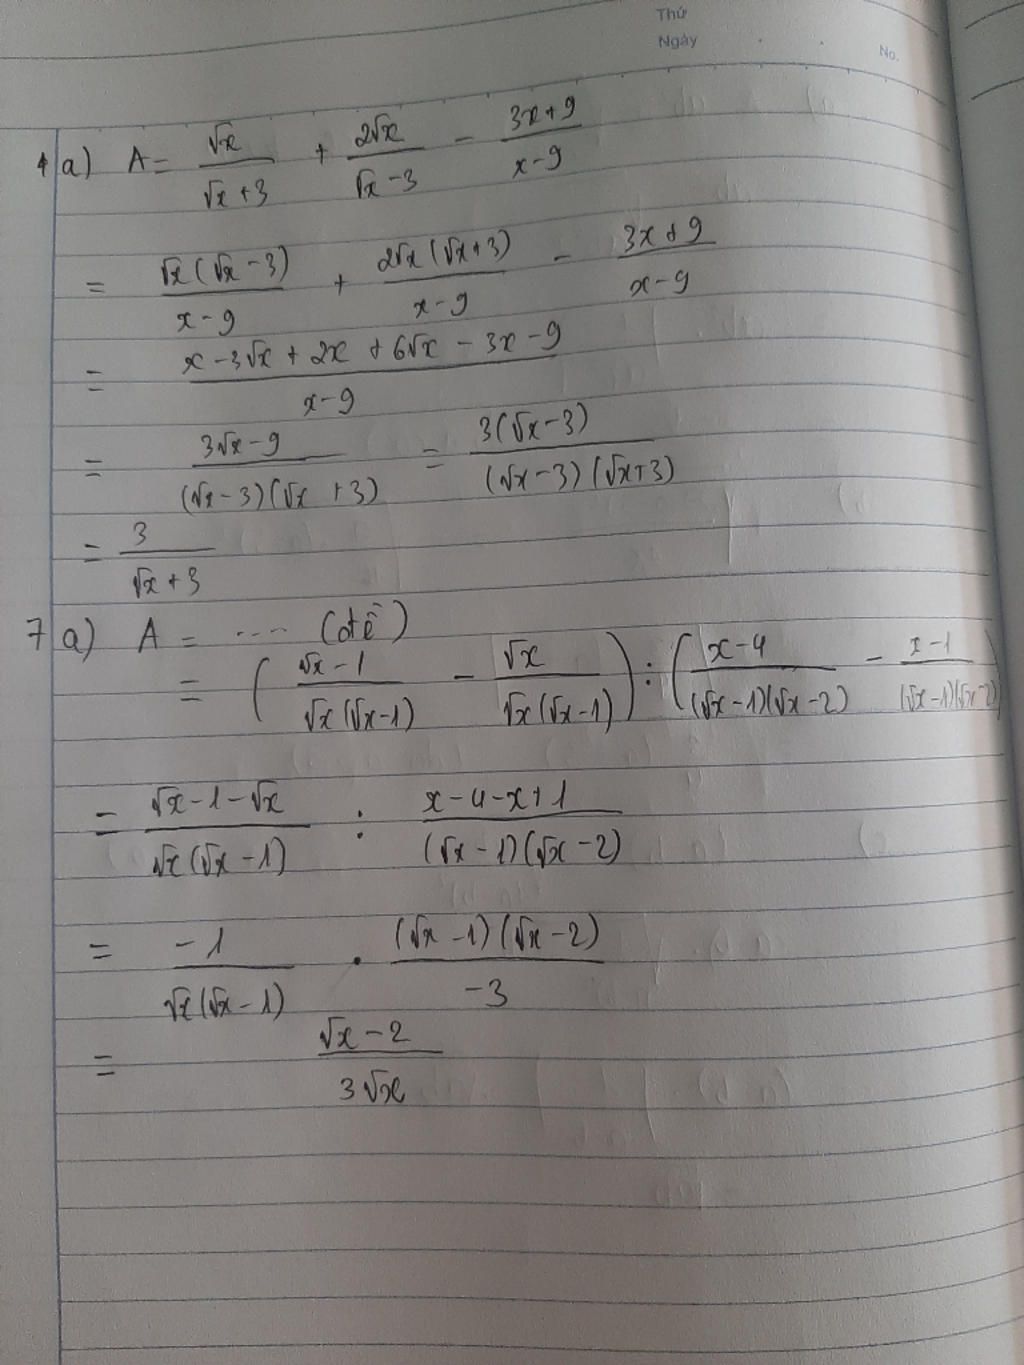 Thứ
Ngày
No.
4 a) A = √x/(√x + 3) + 2√x/(√x - 3) - (3x + 9)/(x - 9)
= √x(√x - 3)/(x - 9) + 2√x(√x + 3)/(x - 9) - (3x + 9)/(x - 9)
= (x - 3√x + 2x + 6√x - 3x - 9)/(x - 9)
= (3√x - 9)/((√x - 3)(√x + 3)) = 3(√x - 3)/((√x - 3)(√x + 3))
= 3/(√x + 3)
7 a) A = .... (đề)
= ((√x - 1)/(√x(√x - 1)) - √x/(√x(√x - 1))) : ((x - 4)/((√x - 1)(√x - 2)) - (x - 1)/((√x - 1)(√x - 2)))
= (√x - 1 - √x)/(√x(√x - 1)) : (x - 4 - x + 1)/((√x - 1)(√x - 2))
= -1/(√x(√x - 1)) . (√x - 1)(√x - 2)/(-3)
= (√x - 2)/(3√x)